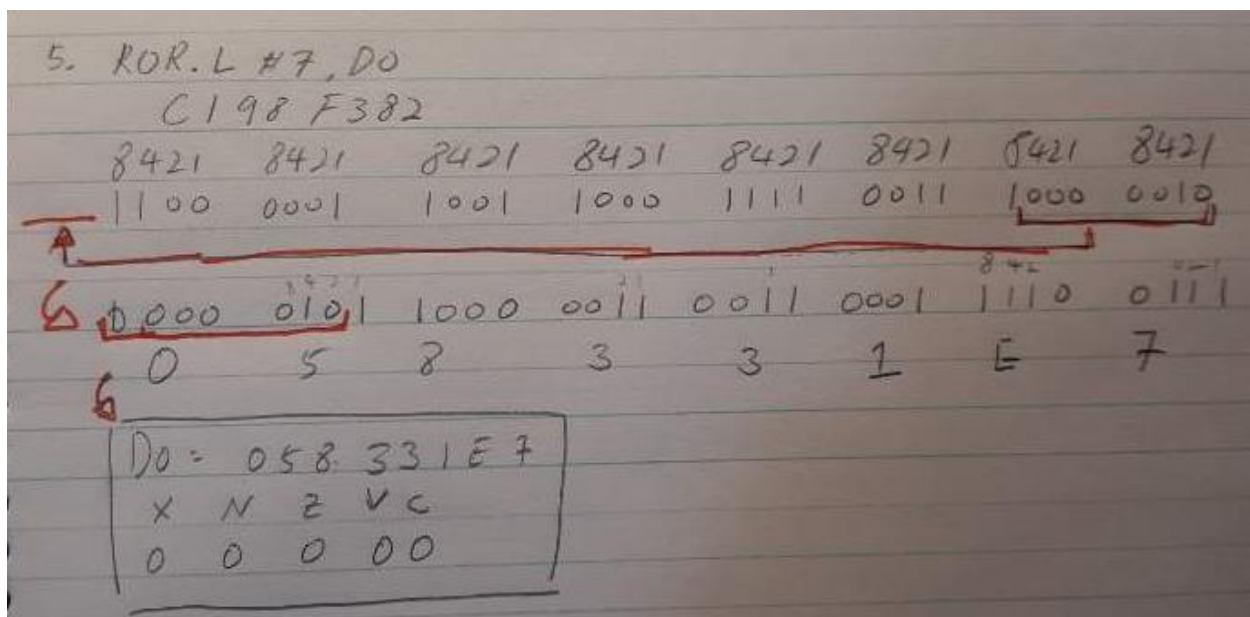 5. ROR.L #7, D0
C198 F382
8421 8421 8421 8421 8421 8421 8421 8421
1100 0001 1001 1000 1111 0011 1000 0010
0000 0101 1000 0011 0011 0001 1110 0111
0 5 8 3 3 1 E 7
D0 = 058 331E7
X N Z V C
0 0 0 0 0